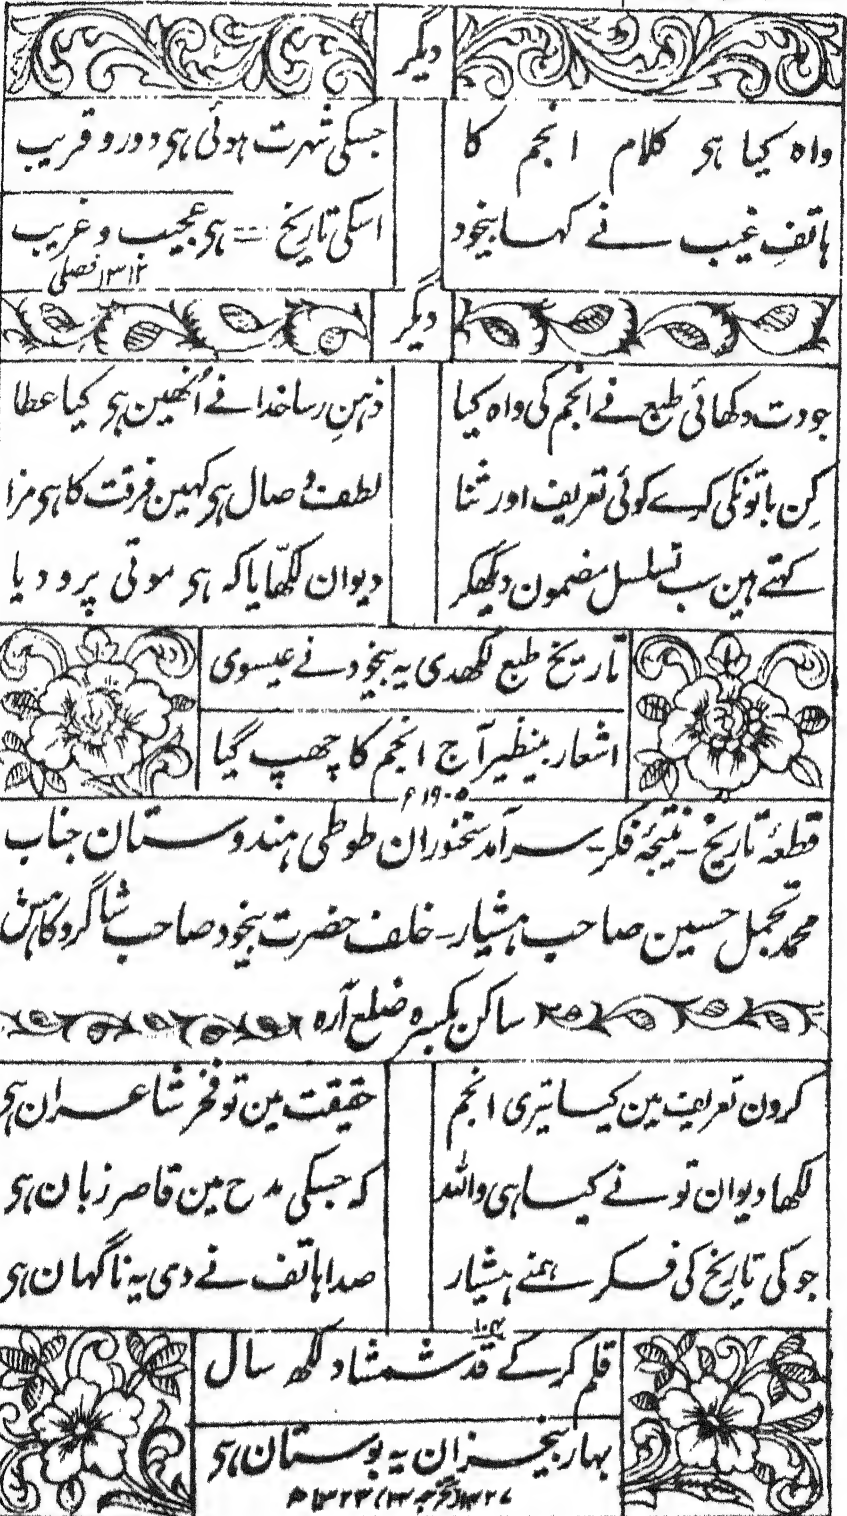 دیگر
واہ کیا ہی کلام انجم کا جسکی شہرت ہوئی ہی دور و قریب
ہاتفِ غیب نے کہا بیخود اسکی تاریخ = ہی عجیب و غریب
۱۳۱۲ فصلی
دیگر
جودت دکھائی طبع نے انجم کی واہ کیا ذہنِ رسا خدا نے اُنھین ہی کیا عطا
کِن باتونکی کرے کوئی تعریف اور ثنا لطف وصال ہی کہین فرقت کا ہی مزا
کہتے ہین سب تسلسل مضمون دیکھکر دیوان لکھّا یا کہ ہی موتی پرو دیا
تاریخ طبع لکھدی یہ بیخود نے عیسوی
اشعار بینظیر آج انجم کا چھپ گیا
۱۹۰۵ء
قطعۂ تاریخ ـ نتیجۂ فکر ـ سرآمد سخنوران طوطی ہندوستان جناب
محمد تجمل حسین صاحب ہشیار ـ خلف حضرت بیخود صاحب شاگرد کاہش
ساکن بکسرہ ضلع آرہ
کرون تعریف مین کیا تیری انجم حقیقت مین تو فخر شاعران ہی
لکھا دیوان تو نے کیسا ہی واللہ کہ جسکی مدح مین قاصر زبان ہی
جو کی تاریخ کی فکر ہمنے ہشیار صدا ہاتف نے دی یہ ناگہان ہی
۱۰۴
قلم کرکے قد شمشاد لکھ سال
بہار بیخزان یہ بوستان ہی